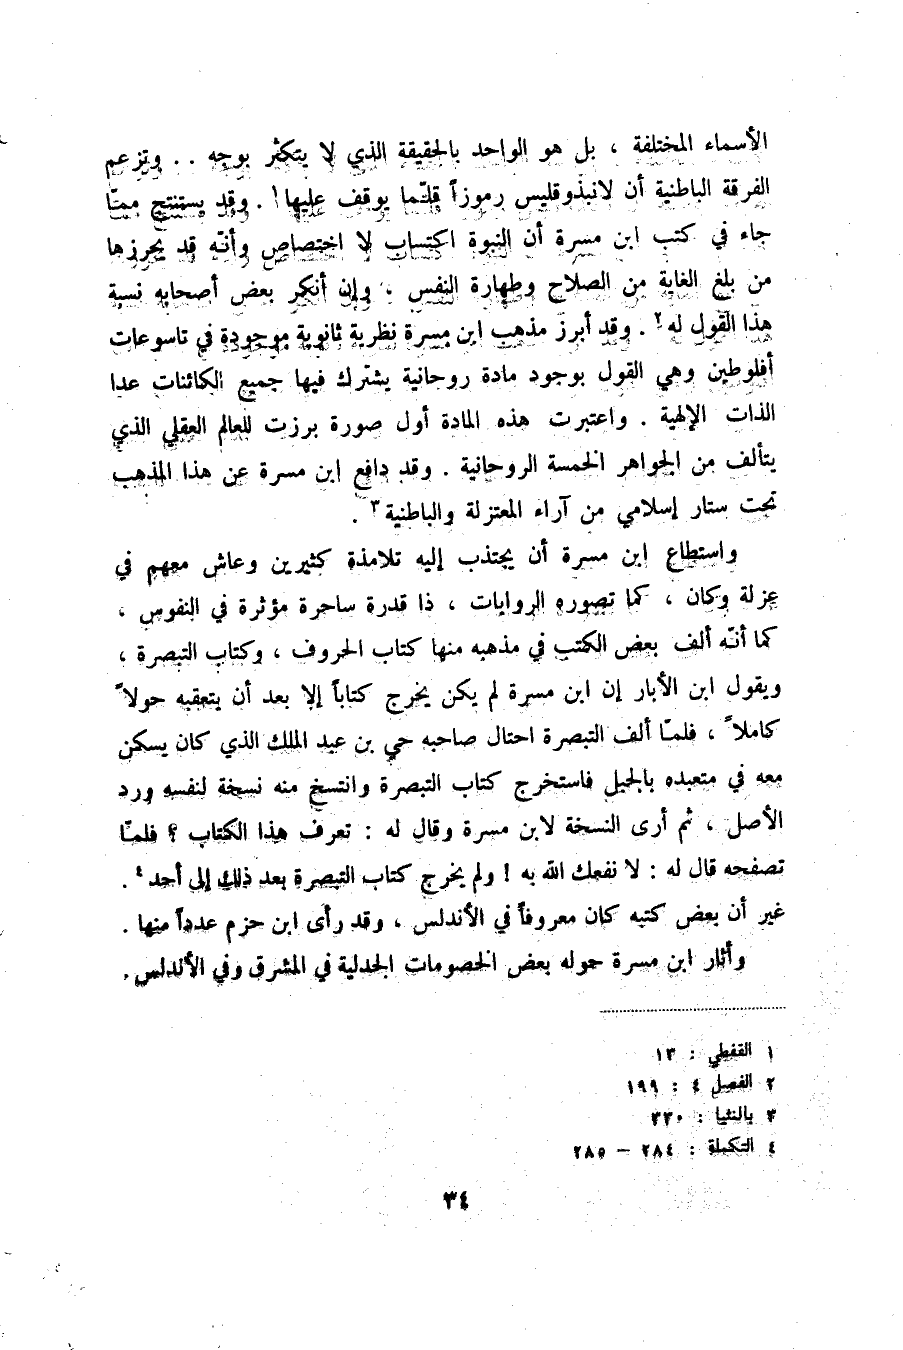 الأسماء المختلفة ، بل هو الواحد بالحقيقة الذي لا يتكثر بوجه . . وتزعم
الفرقة الباطنية أن لانبذوقليس رموزاً قلّما يوقف عليها١ . وقد يستنتج ممّا
جاء في كتب ابن مسرة أن النبوة اكتساب لا اختصاص وأنّه قد يحرزها
من بلغ الغاية من الصلاح وطهارة النفس ، وإن أنكر بعض أصحابه نسبة
هذا القول له٢ . وقد أبرز مذهب ابن مسرة نظرية ثانوية موجودة في تاسوعات
أفلوطين وهي القول بوجود مادة روحانية يشترك فيها جميع الكائنات عدا
الذات الإلهية . واعتبرت هذه المادة أول صورة برزت للعالم العقلي الذي
يتألف من الجواهر الخمسة الروحانية . وقد دافع ابن مسرة عن هذا المذهب
تحت ستار إسلامي من آراء المعتزلة والباطنية٣ .
واستطاع ابن مسرة أن يجتذب إليه تلامذة كثيرين وعاش معهم في
عزلة وكان ، كما تصوره الروايات ، ذا قدرة ساحرة مؤثرة في النفوس ،
كما أنّه ألف بعض الكتب في مذهبه منها كتاب الحروف ، وكتاب التبصرة ،
ويقول ابن الأبار إن ابن مسرة لم يكن يخرج كتاباً إلا بعد أن يتعقبه حولاً
كاملاً ، فلمّا ألف التبصرة احتال صاحبه حي بن عبد الملك الذي كان يسكن
معه في متعبده بالجبل فاستخرج كتاب التبصرة وانتسخ منه نسخة لنفسه ورد
الأصل ، ثم أرى النسخة لابن مسرة وقال له : تعرف هذا الكتاب ؟ فلمّا
تصفحه قال له : لا نفعك الله به ! ولم يخرج كتاب التبصرة بعد ذلك إلى أحد٤ .
غير أن بعض كتبه كان معروفاً في الأندلس ، وقد رأى ابن حزم عدداً منها .
وأثار ابن مسرة حوله بعض الخصومات الجدلية في المشرق وفي الأندلس .
١ القفطي : ١٣
٢ الفصل ٤ : ١٩٩
٣ بالنثيا : ٣٣٠
٤ التكملة : ٢٨٤ - ٢٨٥
٣٤